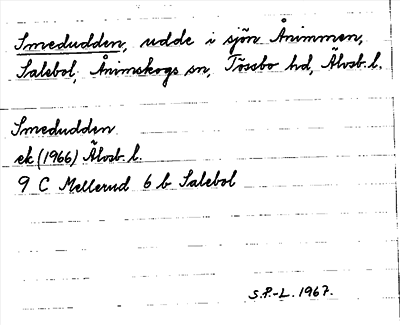 Smedudden, udde i sjön Ånimmen,
Salebol, Ånimskogs sn, Tössbo hd, Älvsb. l.
Smedudden
ek (1966) Älvsb. l.
9 C Mellerud 6 b Salebol
S.P.-L. 1967.